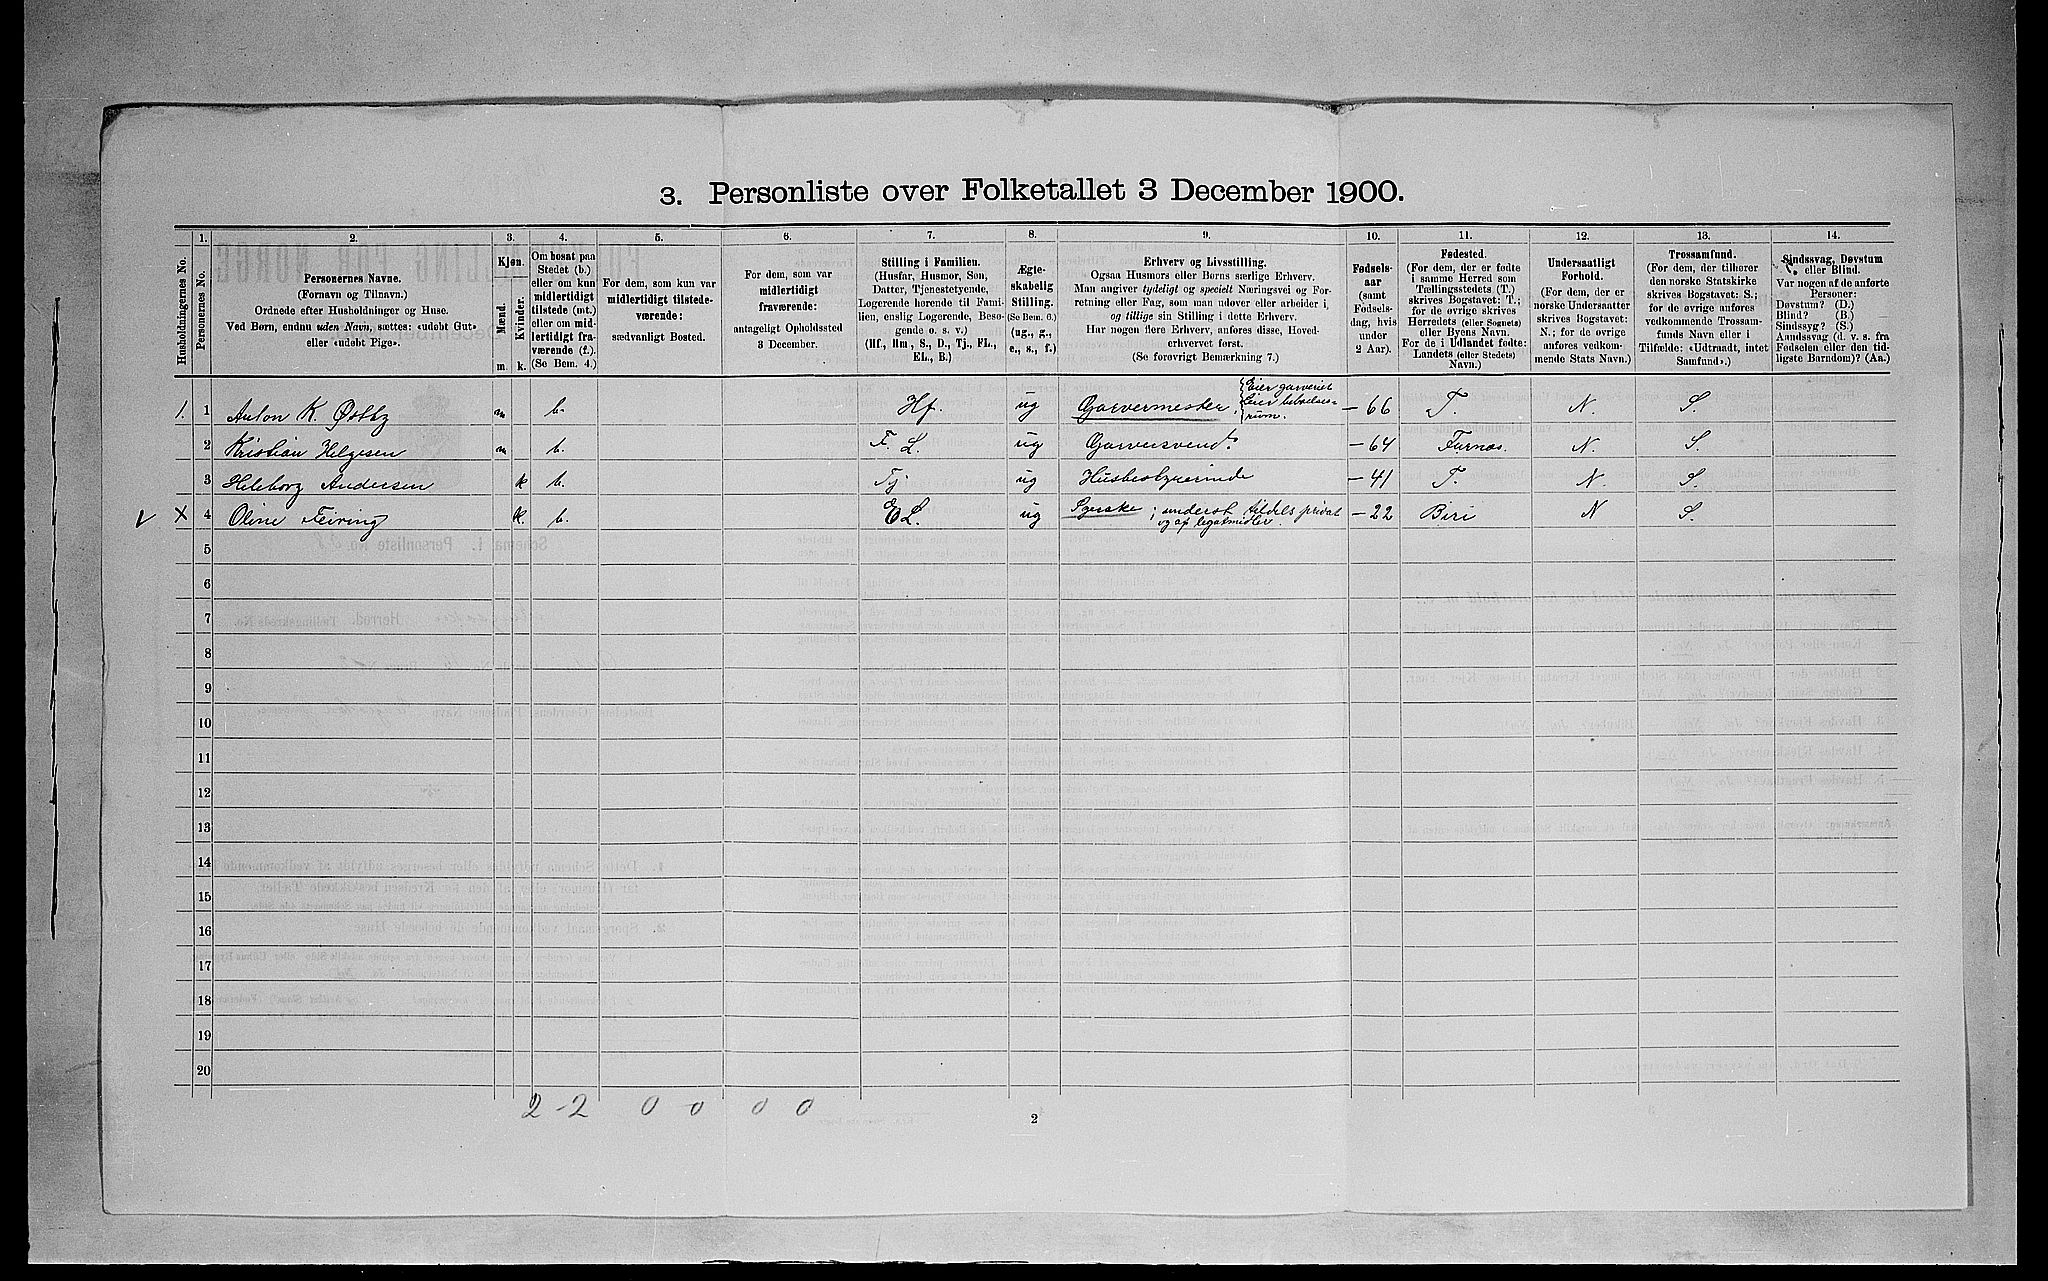 3. Personliste over Folketallet 3 December 1900.
Husholdningernes No.
1.
Personernes No.
2.
Personernes Navne.
(Fornavn og Tilnavn.)
Ordnede efter Husholdninger og Huse.
Ved Børn, endnu uden Navn, sættes: «udøbt Gut»
eller «udøbt Pige».
3.
Kjøn.
Mænd.
Kvinder.
m. k.
4.
Om bosat paa
Stedet (b.)
eller om kun
midlertidigt
tilstede (mt.)
eller om mid-
lertidigt fra-
værende (f.).
(Se Bem. 4.)
5.
For dem, som kun var
midlertidigt tilstede-
værende:
sædvanligt Bosted.
6.
For dem, som var
midlertidigt
fraværende:
antageligt Opholdssted
3 December.
7.
Stilling i Familien.
(Husfar, Husmor, Søn,
Datter, Tjenestetyende,
Logerende hørende til Fami-
lien, enslig Logerende, Besø-
gende o. s. v.)
(Hf., Hm., S., D., Tj., FL.,
EL., B.)
8.
Ægte-
skabelig
Stilling.
(Se Bem. 6.)
(ug., g.,
e., s., f.)
9.
Erhverv og Livsstilling.
Ogsaa Husmors eller Børns særlige Erhverv.
Man angiver tydeligt og specielt Næringsvei og For-
retning eller Fag, som man udøver eller arbeider i,
og tillige sin Stilling i dette Erhverv.
Har nogen flere Erhverv, anføres disse, Hoved-
erhvervet først.
(Se forøvrigt Bemærkning 7.)
10.
Fødsels-
aar
(samt
Fødsels-
dag, hvis
under
2 Aar).
11.
Fødested.
(For dem, der er fødte
i samme Herred som
Tællingsstedets (T.)
skrives Bogstavet: T.;
for de øvrige skrives
Herredets (eller Sognets)
eller Byens Navn.
For de i Udlandet fødte:
Landets (eller Stedets)
Navn.)
12.
Undersaatligt
Forhold.
(For dem, der er
norske Undersaatter
skrives Bogstavet:
N.; for de øvrige
anføres vedkom-
mende Stats Navn.)
13.
Trossamfund.
(For dem, der tilhører
den norske Statskirke
skrives Bogstavet: S.;
for de øvrige anføres
vedkommende Trossam-
funds Navn eller i
Tilfælde: «Udtraadt, intet
Samfund».)
14.
Sindssvag, Døvstum
eller Blind.
Var nogen af de anførte
Personer:
Døvstum? (D.)
Blind? (B.)
Sindssyg? (S.)
Aandssvag (d. v. s. fra
Fødselen eller den tid-
ligste Barndom)? (Aa.)
1. 1 Anton K. Østby m b. Hf. ug Garvermester, {Eier garveriet Eier beboelses= rum. — 66 T. N. S.
2 Kristian Helgesen m b. F. L. ug Garversvend. — 64 Furnes. N. S.
3 Heleborg Andersen k b. Tj. ug Husbestyrerinde — 41 T. N. S.
V X 4 Oline Feiring k. b. EL. ug Syerske; underst. tildels privat og af legatmidler. — 22 Biri N S.
5
6
7
8
9
10
11
12
13
14
15
16
17
18
19
20
2 - 2 0 0 0 0
2